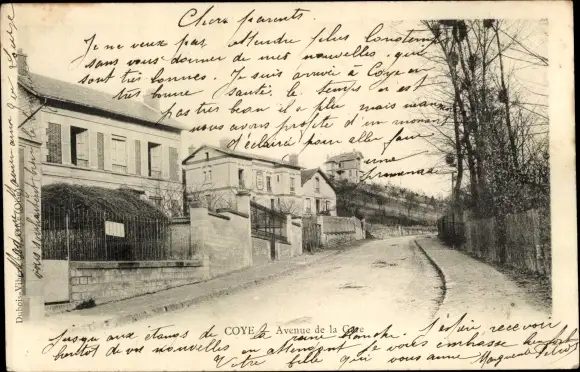 Chers parents.
Je ne veux pas attendre plus longtemps
sans vous donner de mes nouvelles, qui
sont très bonnes. Je suis arrivé à Coye en
très bonne santé, le temps n'est
pas très beau il a plu mais
nous avons profité d'un
d'éclairci pour aller faire
une
promenade
COYE Avenue de la Gare
jusqu'aux étangs de la reine blanche. J'espère recevoir
bientôt de vos nouvelles en attendant je vous embrasse
Votre fille qui vous aime Marguerite